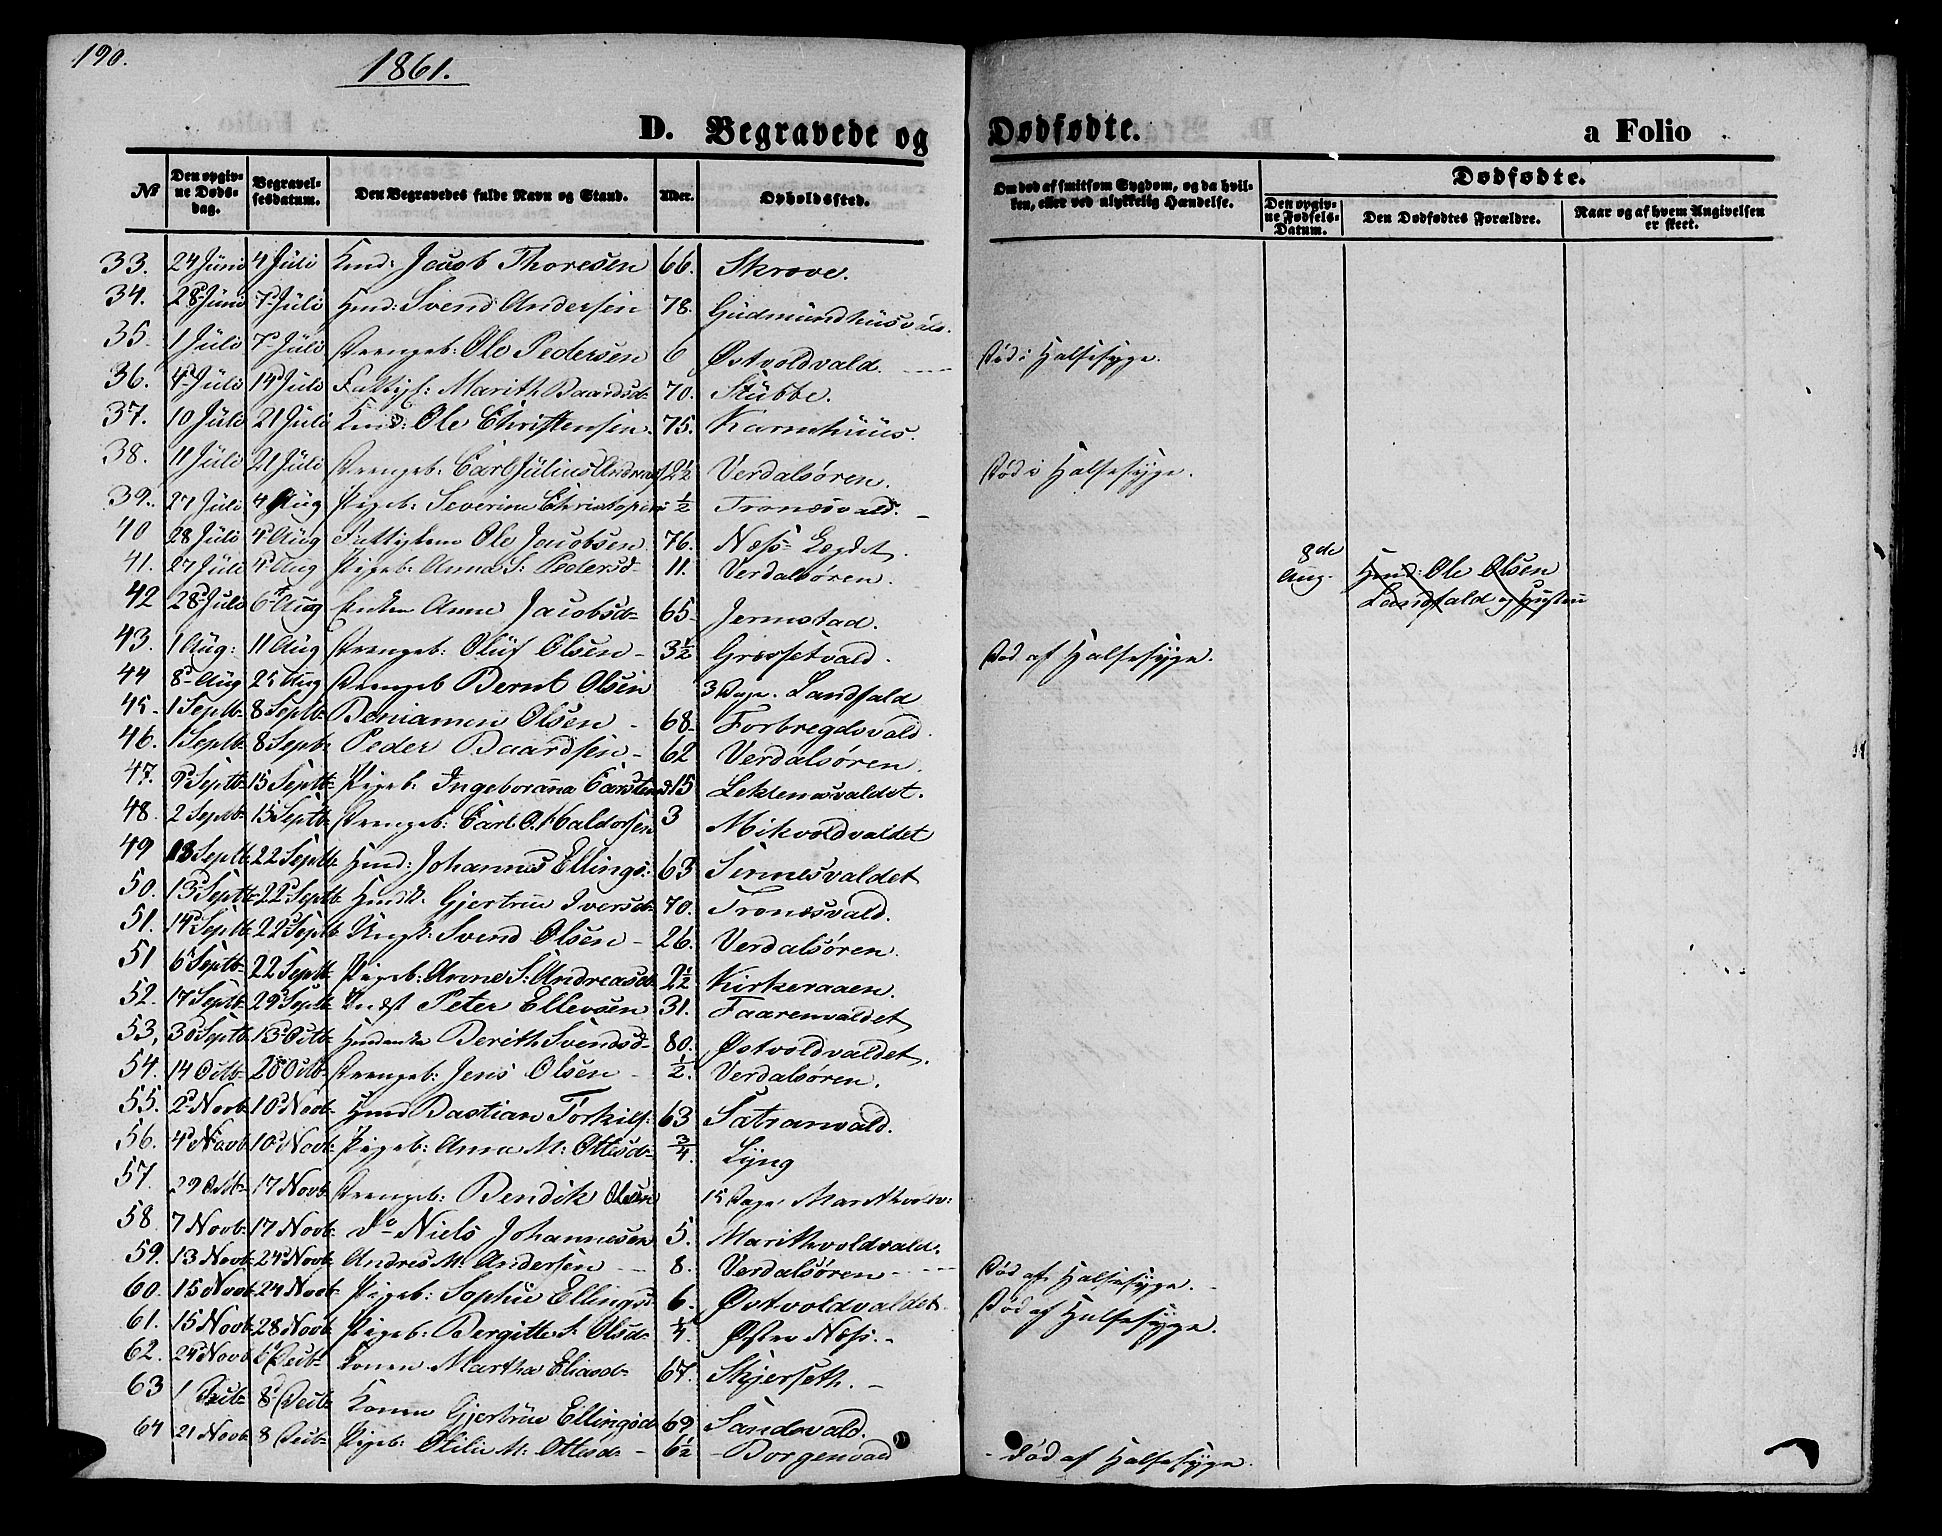 190.
1861.
D. Begravede og Dødfødte. a Folio
No
Den opgivne Dødsdag.
Begravelsesdatum.
Den Begravedes fulde Navn og Stand.
Alder.
Opholdssted.
Om død af smitsom Sygdom, og da hvilken, eller ved ulykkelig Hændelse.
Dødfødte.
Den opgivne Fødsels-Datum.
Den Dødfødtes Forældre.
Naar og af hvem Angivelsen er skeet.
33. 24 Juni 4 Juli Jacob Thoresen 66. Skrove.
34. 28 Juni 7 Juli Hmd: Svend Andersen 78. Gudmundhusvald.
35. 1 Juli 7 Juli Drengeb: Ole Pedersen 6 Østvoldvald. Død i Halsesyge.
36. 4 Juli 14 Juli Marith Baardsd 70. Stubbe.
37. 10 Juli 21 Juli Ole Christensen. 75. Karmhuus.
38. 11 Juli 21 Juli Drengeb: Carl Julius Andreas 2½ Verdalsøren. Død i Halsesyge.
39. 27 Juli 4 Aug Pigeb: Severine ½ Tronæsvald.
40 28 Juli 4 Aug Ole Jacobsen 76. Næss
41. 27 Juli 4 Aug Pigeb: Anna S: Pedersd 11. Verdalsøren.
8de Aug. Hmd: Ole Olsen Landfald og Hustru
42 28 Juli 6 Aug Enken Anne Jacobsd 65 Jermstad.
43. 1 Aug: 11 Aug Drengeb: Oluf Olsen 3½ Død af Halsesyge.
44 8 Aug 25 Aug Drengeb Bernt Olsen 3 Dage. Landfald
45 1 Septb 8 Septb Beniamen Olsen 68 Forbregdsvald.
46. 1 Septb 8 Septb Peder Baardsen 62 Verdalsøren.
47. 9 Septb 15 Septb Pigeb: Ingeborana 15 Leklemsvaldet.
48. 2 Septb 15 Septb Drengeb: Carl O. Haldorsen 3 Mikvoldvaldet
49 13 Septb 22 Septb Hmd: Johannes Ellings: 63
50. 13 Septb 22 Septb Gjertrue Iversd 70. Tronæsvald.
51. 14 Septb 22 Septb Ungk: Svend Olsen 26. Verdalsøren.
51 6 Septb 22 Septb Pigeb: Anne S: Andreasd 2½ Kirkeraaen.
52. 17 Septb 29 Septb Peter Ellevsen 31. Faarenvaldet
53, 30 Septb 13 Octb Berith Svendsd 80. Østvoldvaldet.
54. 14 Octb 20 Octb Drengeb: Jens Olsen ½. Verdalsøren.
55. 2 Novb 10 Novb Hmd Bastian Torkils: 63
56. 4 Novb 10 Novb Pigeb: Anna M: Ottesd ¾. Lyng
57. 29 Octb 17 Novb Drengeb: Bendik Olsen 15 Dage Marithvoldv:
58. 7 Novb 17 Novb Do Niels Johannesen 5. Marithvoldvald.
59. 13 Novb 24 Novb Andres M. Andersen 8. Verdalsøren Død af Halsesyge.
60. 15 Novb 24 Novb Pigeb: Sophie Ellingsd 6. Østvoldvaldet. Død af Halsesyge.
61. 15 Novb 28 Novb Pigeb: Bergitte S: Olsd ¼. Næss.
62. 24 Novb 6 Decb Konen Martha Eliasd 67. Skjerseth.
63 1 Decb 8 Decb Konen Gjertrue Ellingsd 69 Sandsvald.
64 21 Novb 8 Decb Pigeb: Otilie M: Ottesd 6½ Borgenvald Død af Halsesyge.